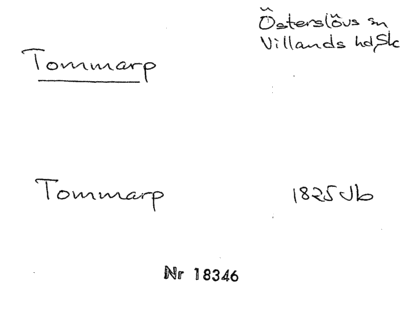 Österslövs sn
Villands hd, Sk
Tommarp
Tommarp 1825 Jb
Nr 18346